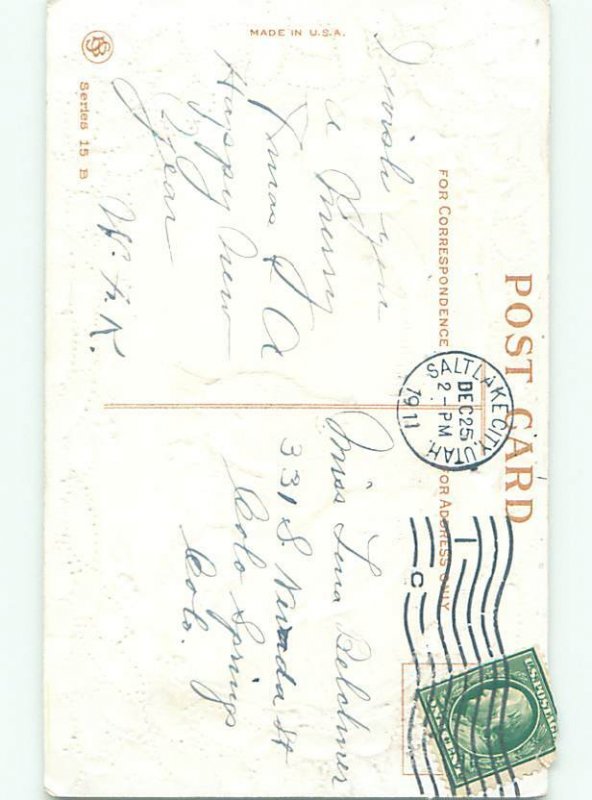 POST CARD
MADE IN U.S.A.
FOR CORRESPONDENCE
FOR ADDRESS ONLY
SALT LAKE CITY, UTAH.
DEC 25
2-PM
1911
1
C
U.S. POSTAGE
ONE CENT
I wish you
a Merry
Xmas & A
Happy New
Year
W. A. K.
Miss Lona
331 S Nevada St
Colo Springs
Colo.
Series 15 B